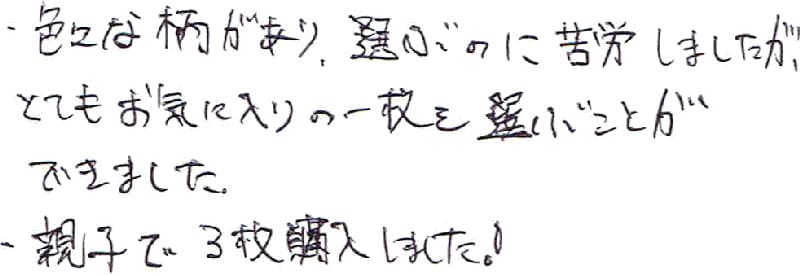 ・色々な柄があり、選ぶのに苦労しましたが、
とてもお気に入りの一枚を選ぶことが
できました。
・親子で3枚購入しました!